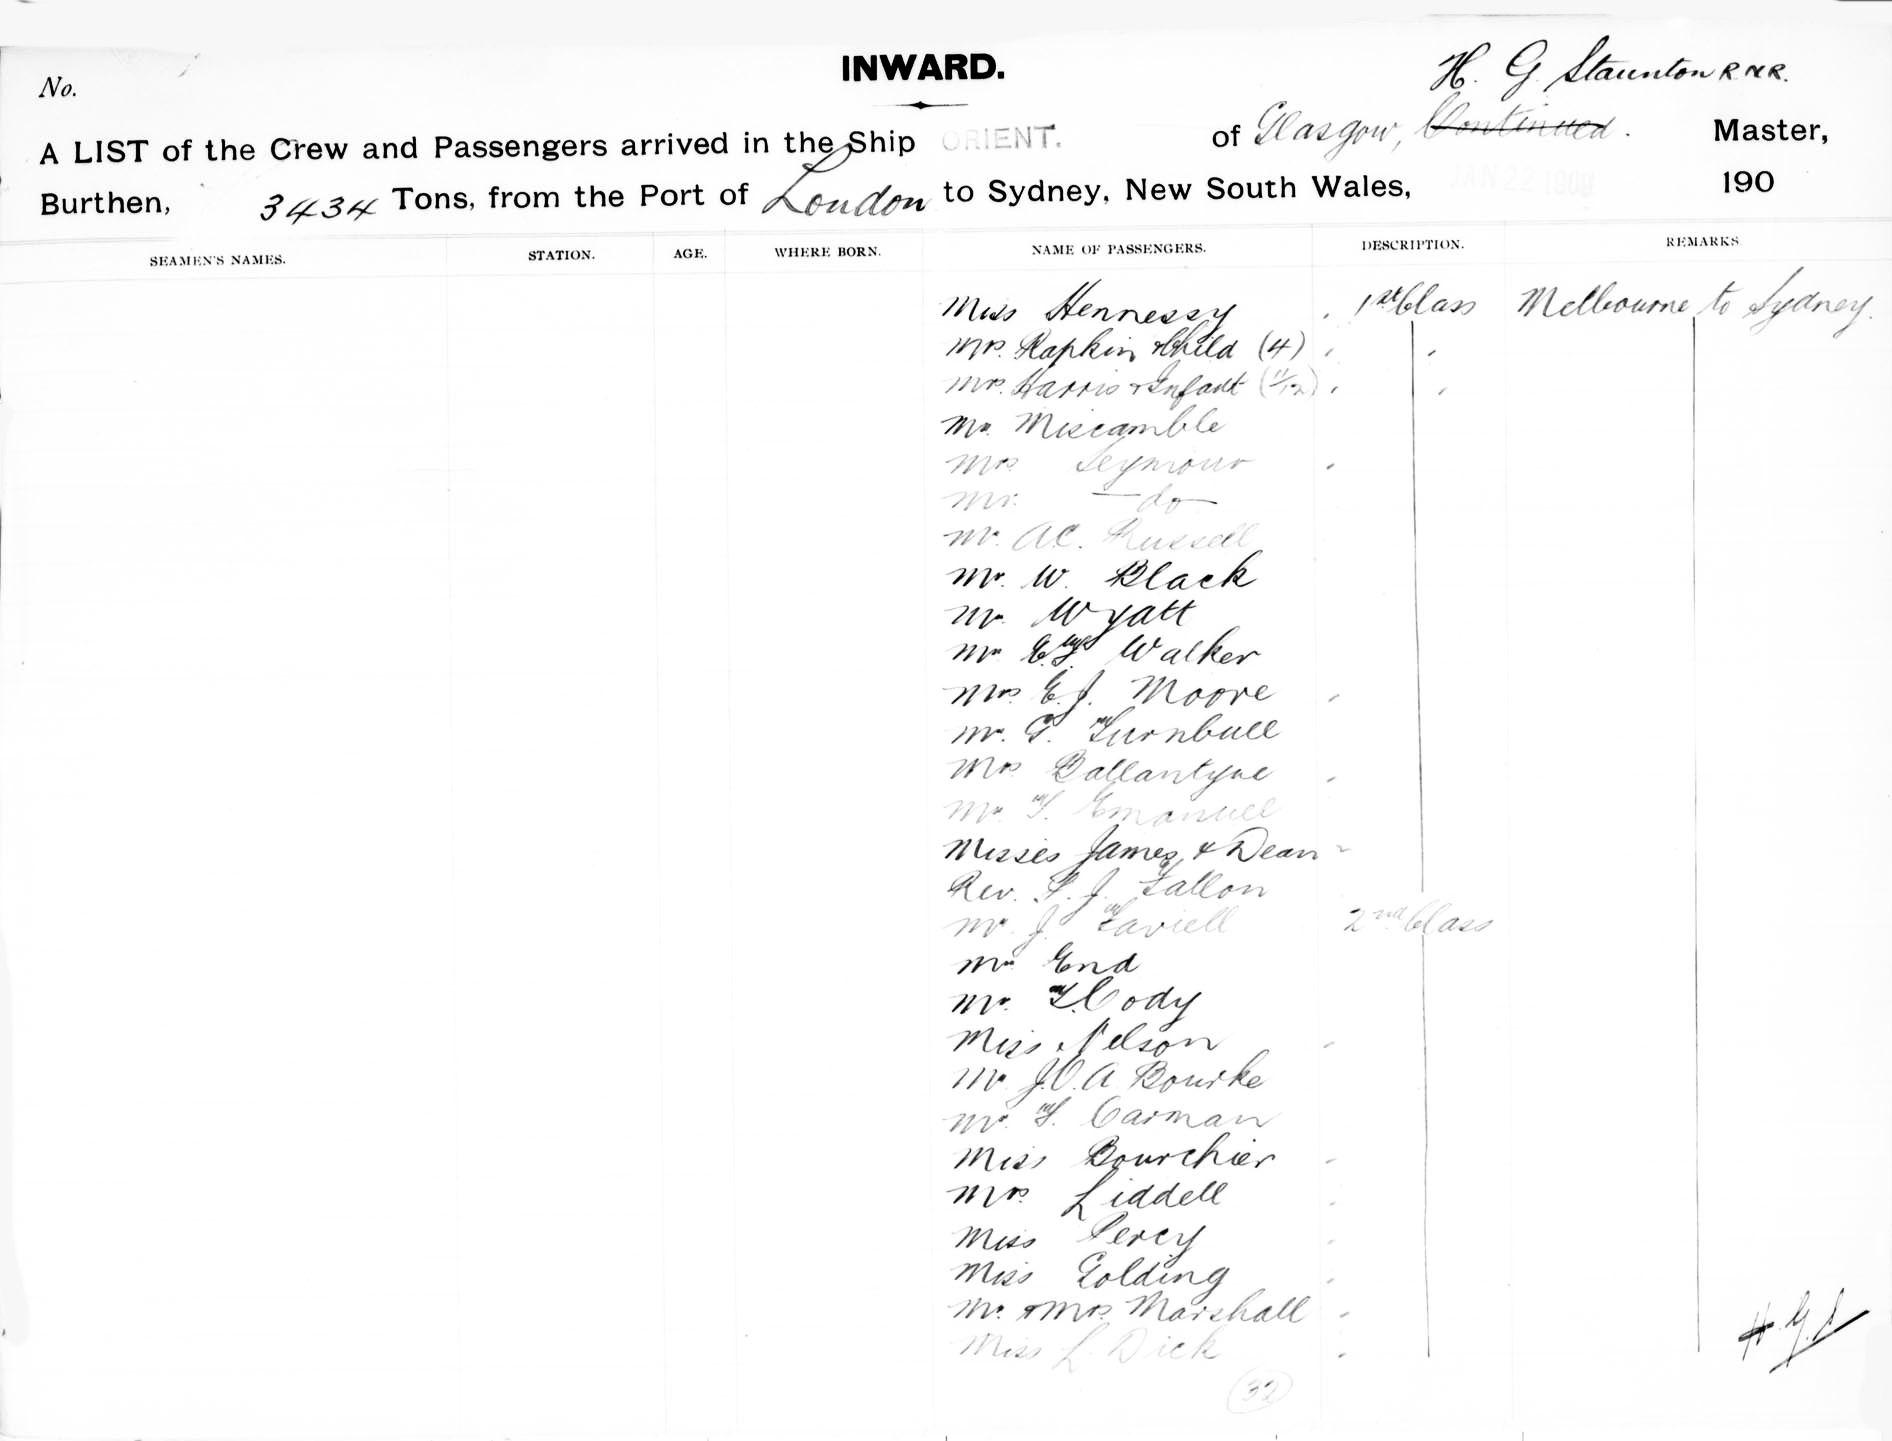 INWARD.
No.
H. G. Staunton R.N.R.
A LIST of the Crew and Passengers arrived in the Ship ORIENT. of Glasgow, Continued. Master,
Burthen, 3434 Tons, from the Port of London to Sydney, New South Wales, JAN 22 1909 190
SEAMEN'S NAMES. STATION. AGE. WHERE BORN. NAME OF PASSENGERS. DESCRIPTION. REMARKS
Miss Hennessy 1st Class Melbourne to Sydney.
Mrs. Rapkin & Child (4)
Mrs. Harris & Infant (11/12)
Mr. Miscamble
Mrs Seymour
Mr. — do —
Mr. A.C. Russell
Mr. W. Black
Mr. Wyatt
Mr Walker
Mrs E.J. Moore
Mr. G. Turnbull
Mrs Ballantyne
Mr. T. Emanuel
Misses James & Dean
Rev. P. J. Fallon
Mr. J. 2nd Class
Mr End
Mr. T. Cody
Miss Nelson
Mr J.O.A Bourke
Mr. T. Carman
Miss Bourchier
Mrs Liddell
Miss Percy
Miss Golding
Mr. & Mrs. Marshall
Miss L. Dick
H.G.S
(32)